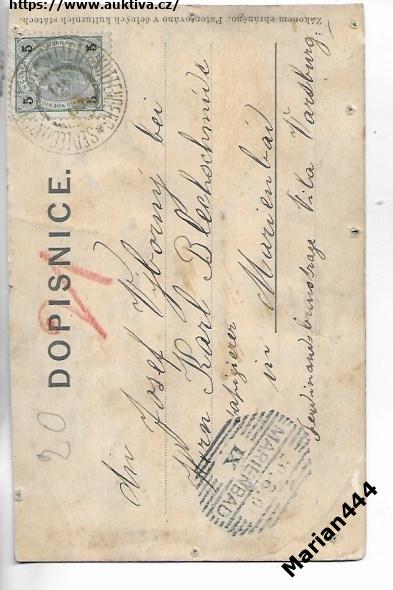 https://www.auktiva.cz/
Zákonem chráněno. Patentováno v čelných kulturních státech.
5 5
5 5
DOPISNICE.
21
20
An Josef Výborný bei
Herrn Karl Blechschmidt
Tapezierer
in Marienbad
Ferdinandsbrunnstraße Vila Varsburg.
MARIENBAD
IX
Marian444